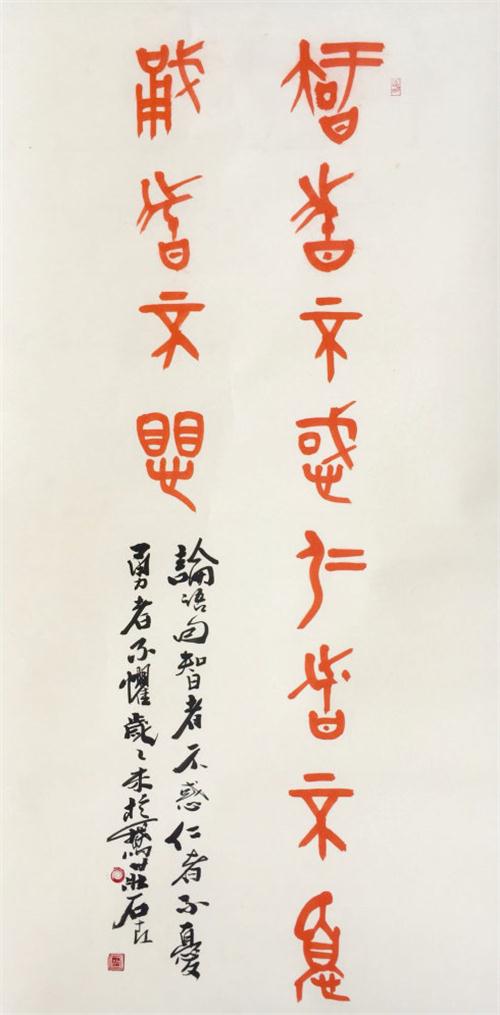 智者不惑仁者不憂
勇者不懼
論语句智者不惑仁者不憂
勇者不懼歲乙未於